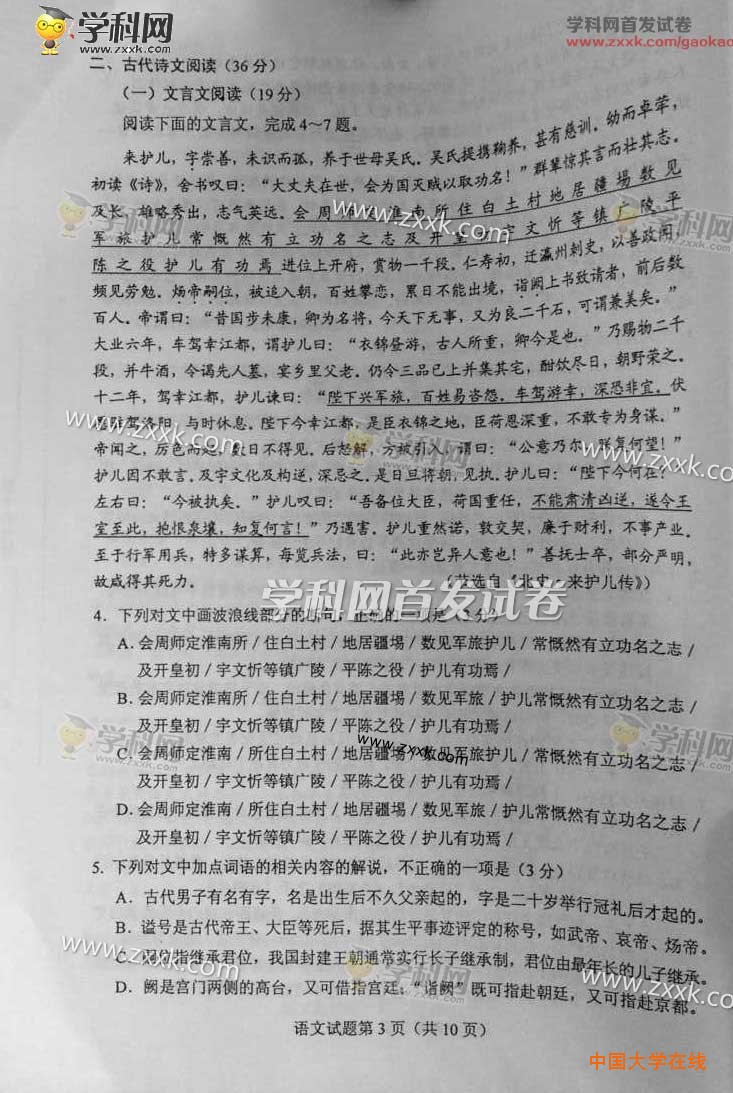 学科网
www.zxxk.com
学科网首发试卷
www.zxxk.com/gaokao
二、古代诗文阅读（36 分）
（一）文言文阅读（19 分）
阅读下面的文言文，完成 4～7 题。
来护儿，字崇善，未识而孤，养于世母吴氏。吴氏提携鞠养，甚有慈训。幼而卓荦，
初读《诗》，舍书叹曰：“大丈夫在世，会为国灭贼以取功名！”群辈惊其言而壮其志。
及长，雄略秀出，志气英远。会周师定淮南所住白土村地居疆埸数见
军旅护儿常慨然有立功名之志及开皇初宇文忻等镇广陵平
陈之役护儿有功焉 进位上开府，赏物一千段。仁寿初，迁瀛州刺史，以善政闻，
频见劳勉。炀帝嗣位，被追入朝，百姓攀恋，累日不能出境，诣阙上书致请者，前后数
百人。帝谓曰：“昔国步未康，卿为名将，今天下无事，又为良二千石，可谓兼美矣。”
大业六年，车驾幸江都，谓护儿曰：“衣锦昼游，古人所重，卿今是也。”乃赐物二千
段，并牛酒，令谒先人墓，宴乡里父老。仍令三品已上并集其宅，酣饮尽日，朝野荣之。
十二年，驾幸江都，护儿谏曰：“陛下兴军旅，百姓易咨怨。车驾游幸，深恐非宜。伏
驻驾洛阳，与时休息。陛下今幸江都，是臣衣锦之地，臣荷恩深重，不敢专为身谋。”
帝闻之，厉色而起，数日不得见。后怒解，方被引入，谓曰：“公意乃尔，朕复何望！”
护儿因不敢言。及宇文化及构逆，深忌之。是日旦将朝，见执。护儿曰：“陛下今何在？”
左右曰：“今被执矣。”护儿叹曰：“吾备位大臣，荷国重任，不能肃清凶逆，遂令王
室至此，抱恨泉壤，知复何言！”乃遇害。护儿重然诺，敦交契，廉于财利，不事产业。
至于行军用兵，特多谋算，每览兵法，曰：“此亦岂异人意也！”善抚士卒，部分严明，
故咸得其死力。
（节选自《北史·来护儿传》）
4．下列对文中画波浪线部分的断句，正确的一项是（3 分）
A．会周师定淮南所 / 住白土村 / 地居疆埸 / 数见军旅护儿 / 常慨然有立功名之志 /
及开皇初 / 宇文忻等镇广陵 / 平陈之役 / 护儿有功焉 /
B．会周师定淮南所 / 住白土村 / 地居疆埸 / 数见军旅 / 护儿常慨然有立功名之志 /
及开皇初 / 宇文忻等镇广陵 / 平陈之役 / 护儿有功焉 /
C．会周师定淮南 / 所住白土村 / 地居疆埸 / 数见军旅护儿 / 常慨然有立功名之志 /
及开皇初 / 宇文忻等镇广陵 / 平陈之役 / 护儿有功焉 /
D．会周师定淮南 / 所住白土村 / 地居疆埸 / 数见军旅 / 护儿常慨然有立功名之志 /
及开皇初 / 宇文忻等镇广陵 / 平陈之役 / 护儿有功焉 /
5．下列对文中加点词语的相关内容的解说，不正确的一项是（3 分）
A．古代男子有名有字，名是出生后不久父亲起的，字是二十岁举行冠礼后才起的。
B．谥号是古代帝王、大臣等死后，据其生平事迹评定的称号，如武帝、哀帝、炀帝。
C．嗣位指继承君位，我国封建王朝通常实行长子继承制，君位由最年长的儿子继承。
D．阙是宫门两侧的高台，又可借指宫廷；“诣阙”既可指赴朝廷，又可指赴京都。
语文试题第 3 页（共 10 页）
中国大学在线